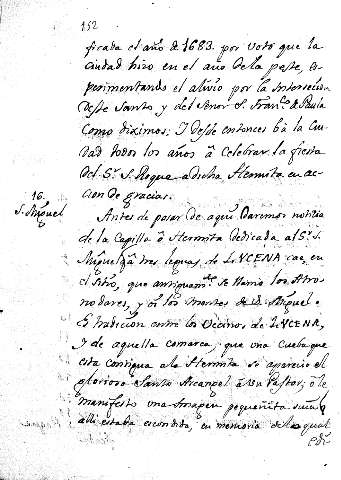 152
ficada el año de 1683. por voto que la
ciudad hizo en el año de la peste, ex-
perimentando el alivio por la Intersecion
deste Santo y del Señor S. Franco. de Paula
como diximos: Y desde entonces bà la Ciu-
dad todos los años à celebrar la fiesta
del Sr. S. Roque a dicha Hermita en ac-
cion de gracias.
16.
S. Miguel
Antes de pasar de aqui daremos noticia
de la Capilla ò Hermita dedicada al Sr. S.
Miguel qe. à tres leguas de LVCENA cae, en
el sitio, que antiguamte. se llamò los
y oi los Montes de S. Miguel.
Es tradicion entre los Vecinos de LVCENA,
y de aquella comarca, que una Cueba que
esta contigua a la Hermita se aparecio el
glorioso Santo Arcangel à un Pastor; ò le
manifesto una Imagen pequeñita suia
alli estaba escondida, en memoria de lo qual